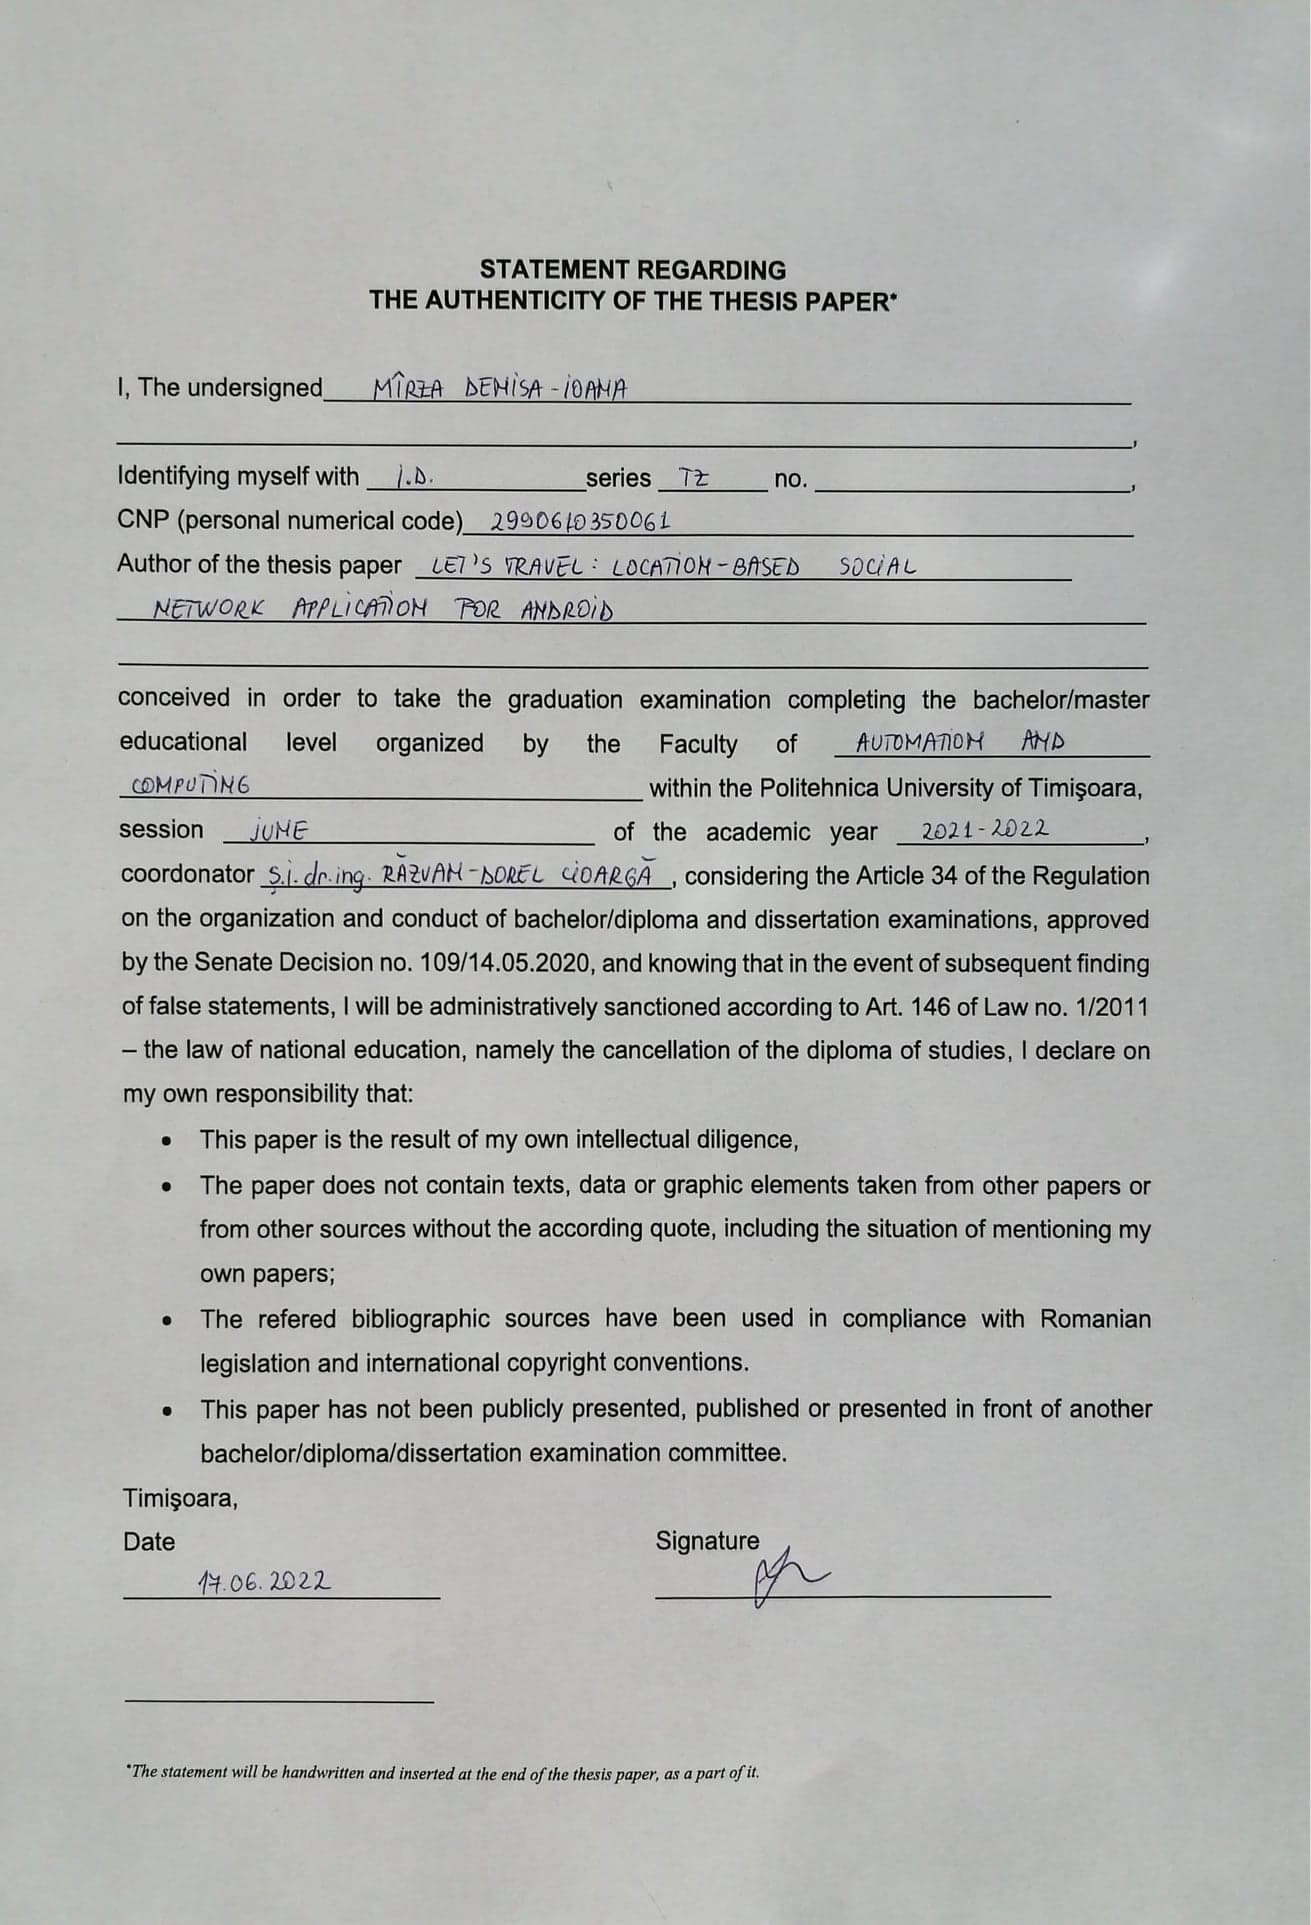 STATEMENT REGARDING
THE AUTHENTICITY OF THE THESIS PAPER*
I, The undersigned MÎRZA DENISA-IOANA
,
Identifying myself with I.D. series TZ no. ,
CNP (personal numerical code) 2990610350061
Author of the thesis paper LET'S TRAVEL: LOCATION-BASED SOCIAL
NETWORK APPLICATION FOR ANDROID
conceived in order to take the graduation examination completing the bachelor/master
educational level organized by the Faculty of AUTOMATION AND
COMPUTING within the Politehnica University of Timişoara,
session JUNE of the academic year 2021-2022,
coordonator Ș.i. dr.ing. RĂZVAN-DOREL CIOARGĂ, considering the Article 34 of the Regulation
on the organization and conduct of bachelor/diploma and dissertation examinations, approved
by the Senate Decision no. 109/14.05.2020, and knowing that in the event of subsequent finding
of false statements, I will be administratively sanctioned according to Art. 146 of Law no. 1/2011
– the law of national education, namely the cancellation of the diploma of studies, I declare on
my own responsibility that:
• This paper is the result of my own intellectual diligence,
• The paper does not contain texts, data or graphic elements taken from other papers or
from other sources without the according quote, including the situation of mentioning my
own papers;
• The refered bibliographic sources have been used in compliance with Romanian
legislation and international copyright conventions.
• This paper has not been publicly presented, published or presented in front of another
bachelor/diploma/dissertation examination committee.
Timişoara,
Date Signature
17.06.2022
*The statement will be handwritten and inserted at the end of the thesis paper, as a part of it.